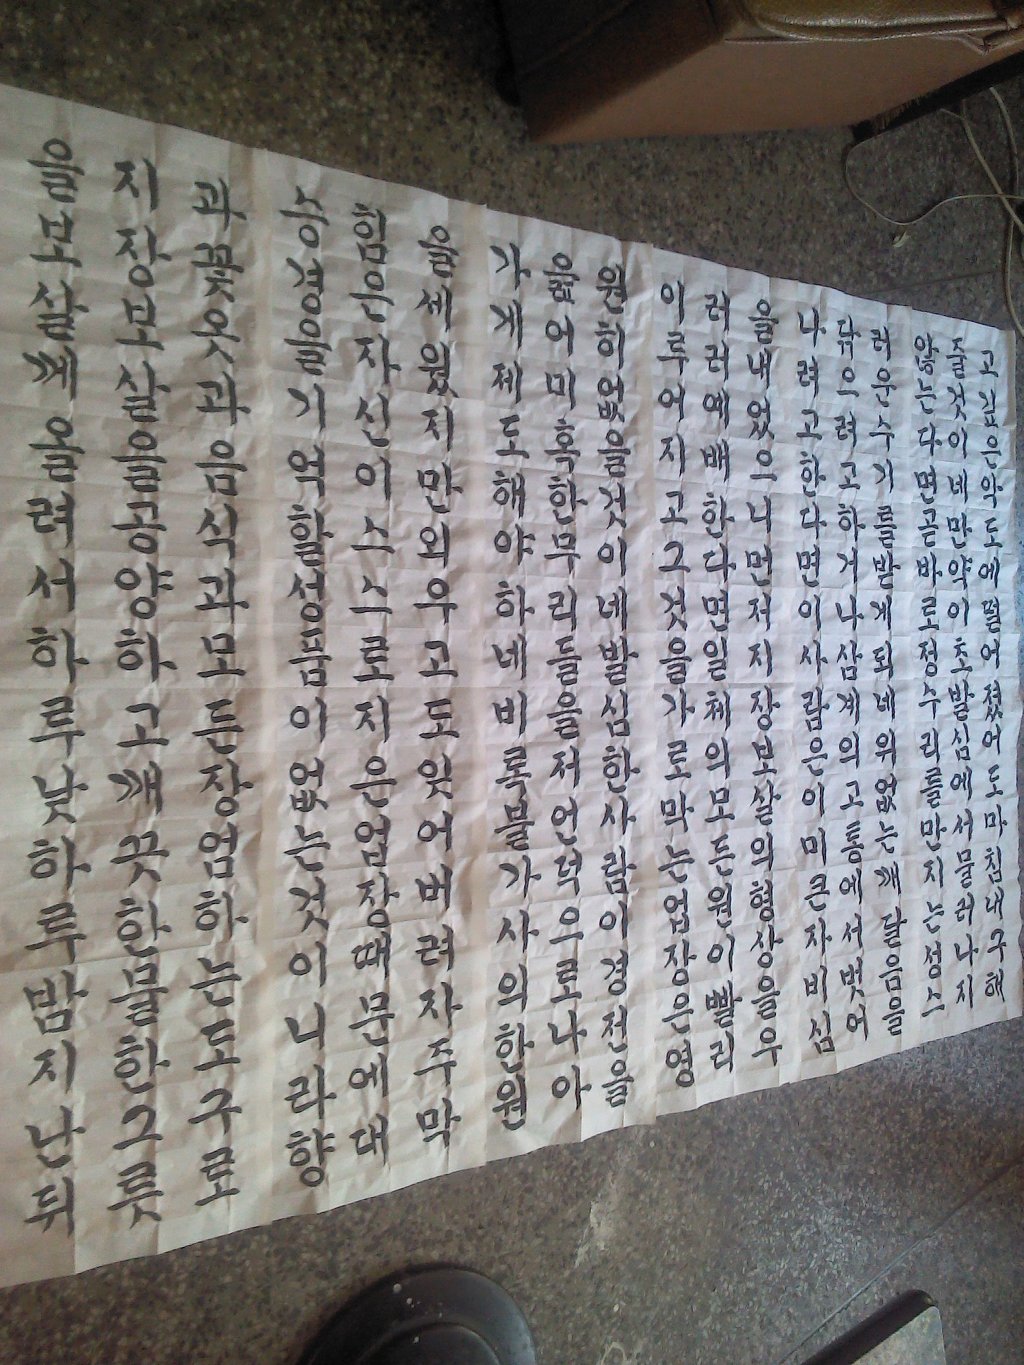 고남은악도에떨어졌어도마침내구해
줄것이네만약이초발심에서물러나지
않는다면곧바로정수리를만지는정스
러운수기를받게되네위없는깨달음을
닦으려고하거나삼계의고통에서벗어
나려고한다면이사람은이미큰자비심
을내었으니먼저지장보살의형상을우
러러예배한다면일체의모든원이빨리
이루어지고그것을가로막는업장은영
원히없을것이네발심한사람이경전을
읊어미혹한무리들을저언덕으로나아
가게제도해야하네비록불가사의한원
을세웠지만외우고도잊어버려자주막
힘은자신이스스로지은업장때문에대
승경을기억할성품이없는것이니라향
과꽃옷과음식과모든장엄하는도구로
지장보살을공양하고깨끗한물한그릇
을보살께올려서하루낮하루밤지난뒤